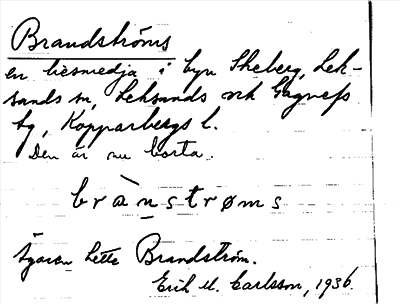 Brandströms
en liesmedja i byn Skeberg, Lek-
sands sn, Leksands och Gagnefs
tg, Kopparbergs l.
Den är nu borta.
brànstrøms
Ägaren hette Brandström.
Erik M. Carlsson, 1936.